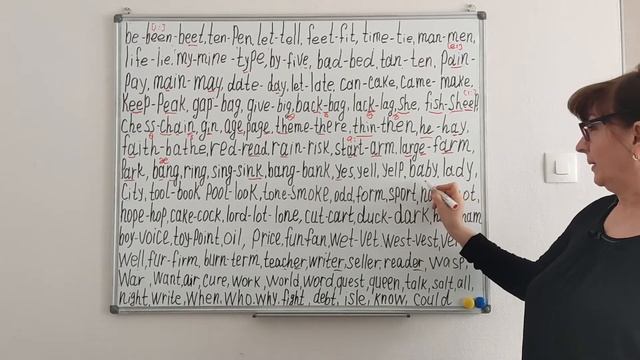 be-been-beet, ten-pen, let-tell, feet-fit, time-tie, man-men,
life-lie, my-mine-type, by-five, bad-bed, tan-ten, pain-
pay, main-may, date-day, let-late, can-cake, came-make,
keep-peak, gap-bag, give-big, back-bag, lack-lag, she, fish-sheep
chess-chain, gin, age, page, theme-there, thin-then, he-hay,
faith-bathe, red-read, rain-risk, start-arm, large-farm,
Park, bang, ring, sing-sink, bang-bank, yes, yell, yelp, baby, lady,
City, tool-book, pool-look, tone-smoke, odd, form, sport,
hope-hop, cake-cock, lord-lot-lone, cut-cart, duck-dark,
boy-voice, toy-point, oil, price, fun, fan, wet-vet, west-vest,
well, fur-firm, burn-term, teacher, writer, seller, reader, wasp,
war, want, air, cure, work, world, word, quest, queen, talk, salt, all,
night, write, when, who, why, fight, debt, isle, know, could